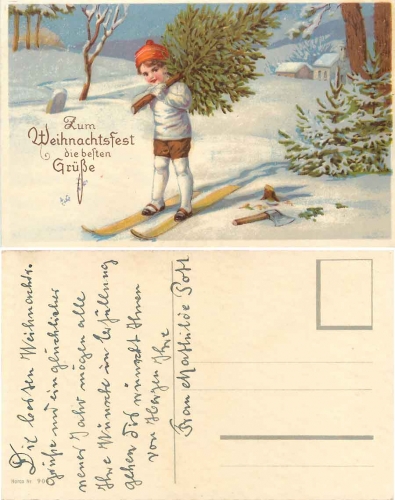 Zum
Weihnachtsfest
die besten
Grüße
Die besten Weihnachts-
grüße und ein glückliches
neues Jahr mögen alle
Ihre Wünsche in Erfüllung
gehen das wünscht Ihnen
von Herzen Ihre
Frau Mathilde Pott